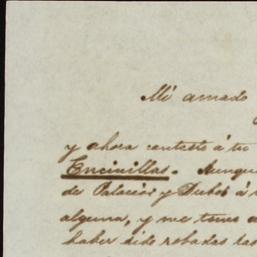 Mi amado
y ahora contesto á tu
Encinillas. Aunque
de Palacios y Dubos á
alguna, y me temo
haber sido robadas las